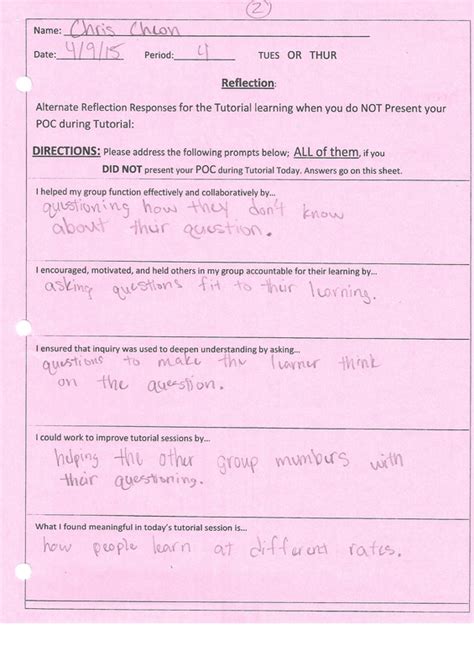 2
Name: Chris Cheon
Date: 4/9/15 Period: 4 TUES OR THUR
Reflection:
Alternate Reflection Responses for the Tutorial learning when you do NOT Present your
POC during Tutorial:
DIRECTIONS: Please address the following prompts below; ALL of them, if you
DID NOT present your POC during Tutorial Today. Answers go on this sheet.
I helped my group function effectively and collaboratively by...
questioning how they don't know
about their question.
I encouraged, motivated, and held others in my group accountable for their learning by...
asking questions fit to their learning.
I ensured that inquiry was used to deepen understanding by asking...
questions to make the learner think
on the question.
I could work to improve tutorial sessions by...
helping the other group members with
their questioning.
What I found meaningful in today's tutorial session is...
how people learn at different rates.